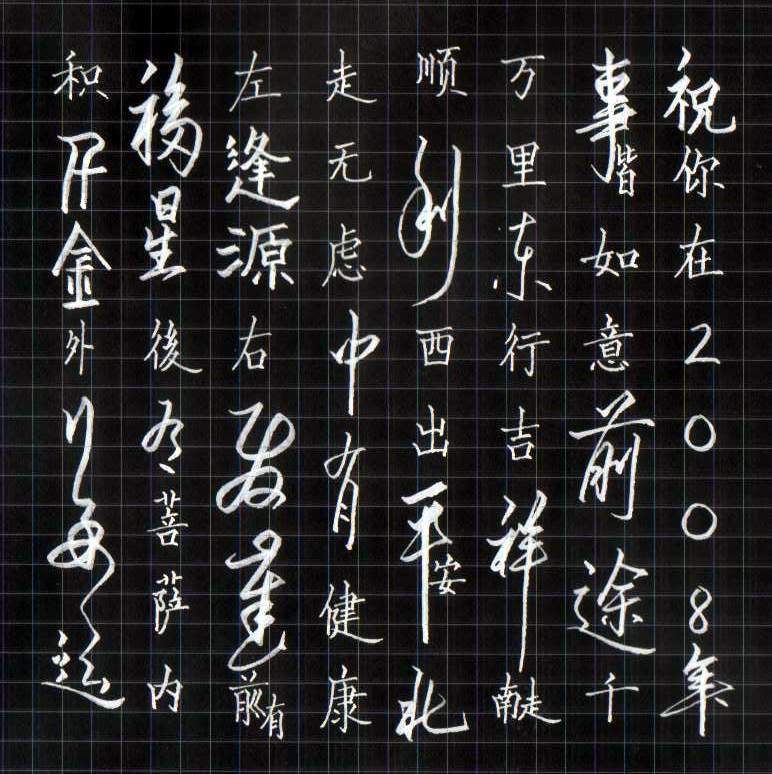 祝你在2008年
事皆如意前途千
万里东行吉祥南走
顺利西出平安北
走无虑中有健康
左逢源右发达前有
福星後有菩萨内
积金外